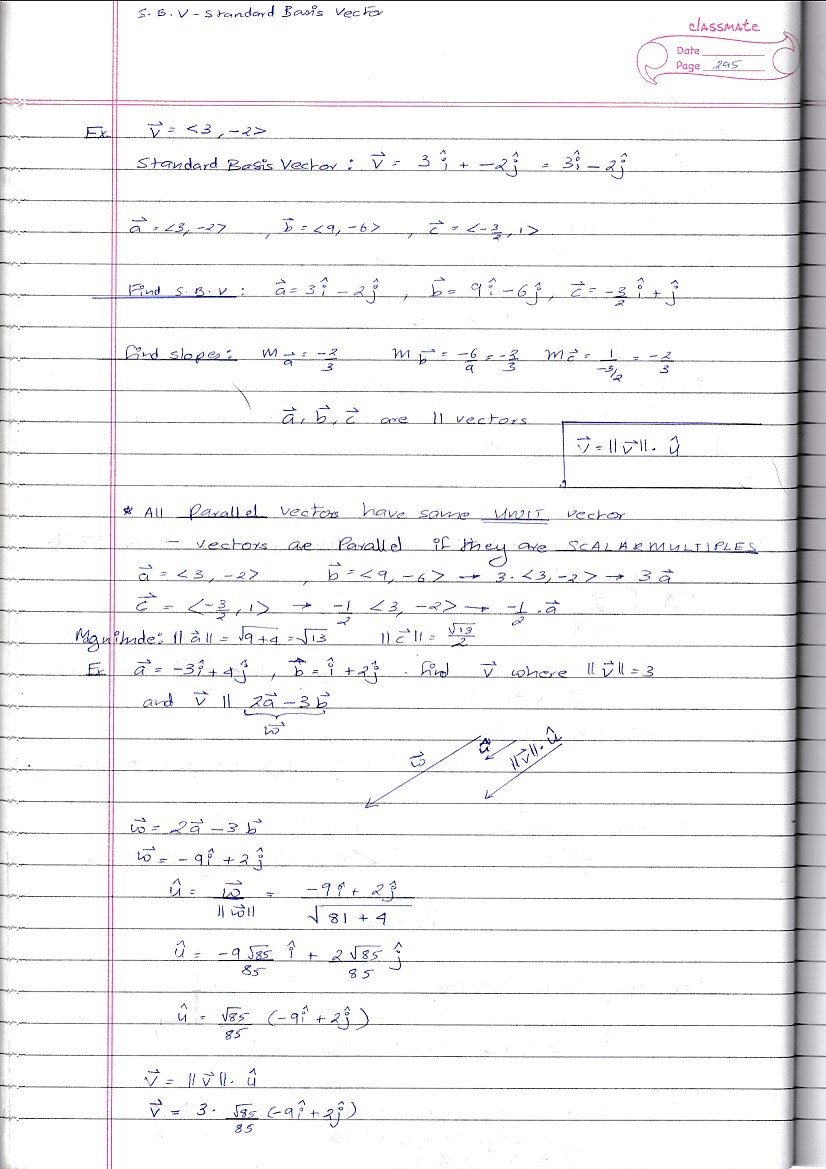 S.B.V - Standard Basis Vector
classmate
Date
Page 295
Ex. v⃗ = <3, -2>
Standard Basis Vector: v⃗ = 3î + -2ĵ = 3î - 2ĵ
a⃗ = <3, -2> , b⃗ = <9, -6> , c⃗ = <-3/2, 1>
Find S.B.V: a⃗ = 3î - 2ĵ , b⃗ = 9î - 6ĵ , c⃗ = -3/2 î + ĵ
find slopes: m a⃗ = -2/3 m b⃗ = -6/9 = -2/3 m c⃗ = 1/(-3/2) = -2/3
a⃗, b⃗, c⃗ are || vectors
v⃗ = ||v⃗||. û
* All Parallel vectors have same UNIT vector
- vectors are Parallel if they are SCALAR MULTIPLES
a⃗ = <3, -2> , b⃗ = <9, -6> → 3·<3, -2> → 3a⃗
c⃗ = <-3/2, 1> → -1/2 <3, -2> → -1/2 . a⃗
Magnitude: ||a⃗|| = √9+4 = √13 ||c⃗|| = √13/2
Ex a⃗ = -3î + 4ĵ , b⃗ = î + 2ĵ . find v⃗ where ||v⃗|| = 3
and v⃗ || 2a⃗ - 3b⃗
w⃗
w⃗ û ||v⃗||. û
w⃗ = 2a⃗ - 3b⃗
w⃗ = -9î + 2ĵ
û = w⃗/||w⃗|| = (-9î + 2ĵ)/√81 + 4
û = -9√85/85 î + 2√85/85 ĵ
û = √85/85 (-9î + 2ĵ)
v⃗ = ||v⃗||. û
v⃗ = 3 · √85/85 (-9î + 2ĵ)